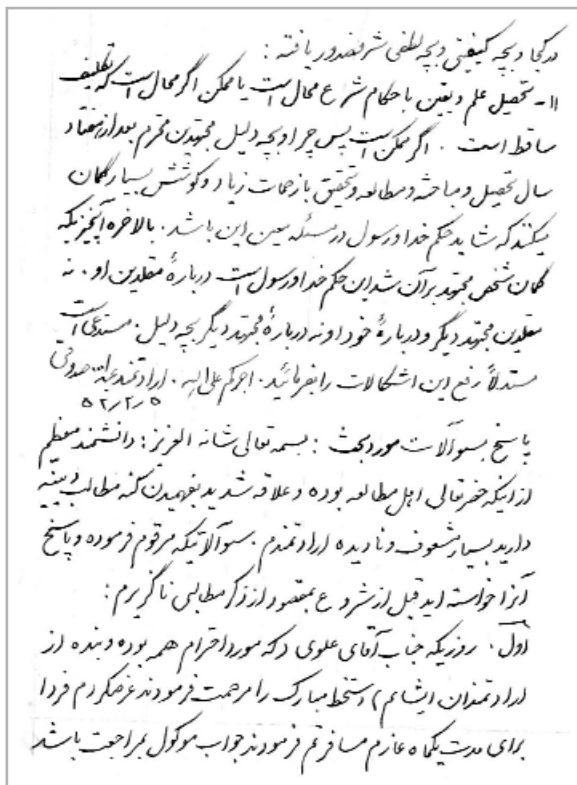 در کجا و بچه کیفیتی و بچه لفظی شرفصدور یافته :
۱۱- تحصیل علم و یقین باحکام شرع محال است یا ممکن اگر محال است که تکلیف
ساقط است . اگر ممکن است پس چرا و بچه دلیل مجتهدین محترم بعد از هفتاد
سال تحصیل و مباحثه و مطالعه و تحقیق با زحمات زیاد و کوشش بسیار گمان
میکنند که شاید حکم خدا و رسول در مسئله عین این باشد . بالاخره آنچیزیکه
گمان شخص مجتهد بر آن شد این حکم خدا و رسول است درباره مقلدین او . نه
مقلدین مجتهد دیگر و درباره خود او نه درباره مجتهد دیگر بچه دلیل . مستدعی است
مستدلاً رفع این اشکالات را بفرمائید . اجرکم علی الله . ارادتمند عبدالله صدوقی
۵۲/۲/۵
پاسخ بسوآلات مورد بحث : بسمه تعالی شانه العزیز : دانشمند معظم
از اینکه حضرتعالی اهل مطالعه بوده و علاقه شدید بفهمیدن کنه مطالب دینیه
دارید بسیار مشعوف و نادیده ارادتمندم . سوآلاتیکه مرقوم فرموده و پاسخ
آنرا خواسته اید قبل از شروع بمقصود از ذکر مطالبی ناگزیرم :
اول . روزیکه جناب آقای علوی ( که مورد احترام همه بوده و بنده از
ارادتمندان ایشانم ) دستخط مبارک را مرحمت فرمودند عرضکردم فردا
برای مدت یکماه عازم مسافرتم فرمودند جواب موکول بمراجعت باشد